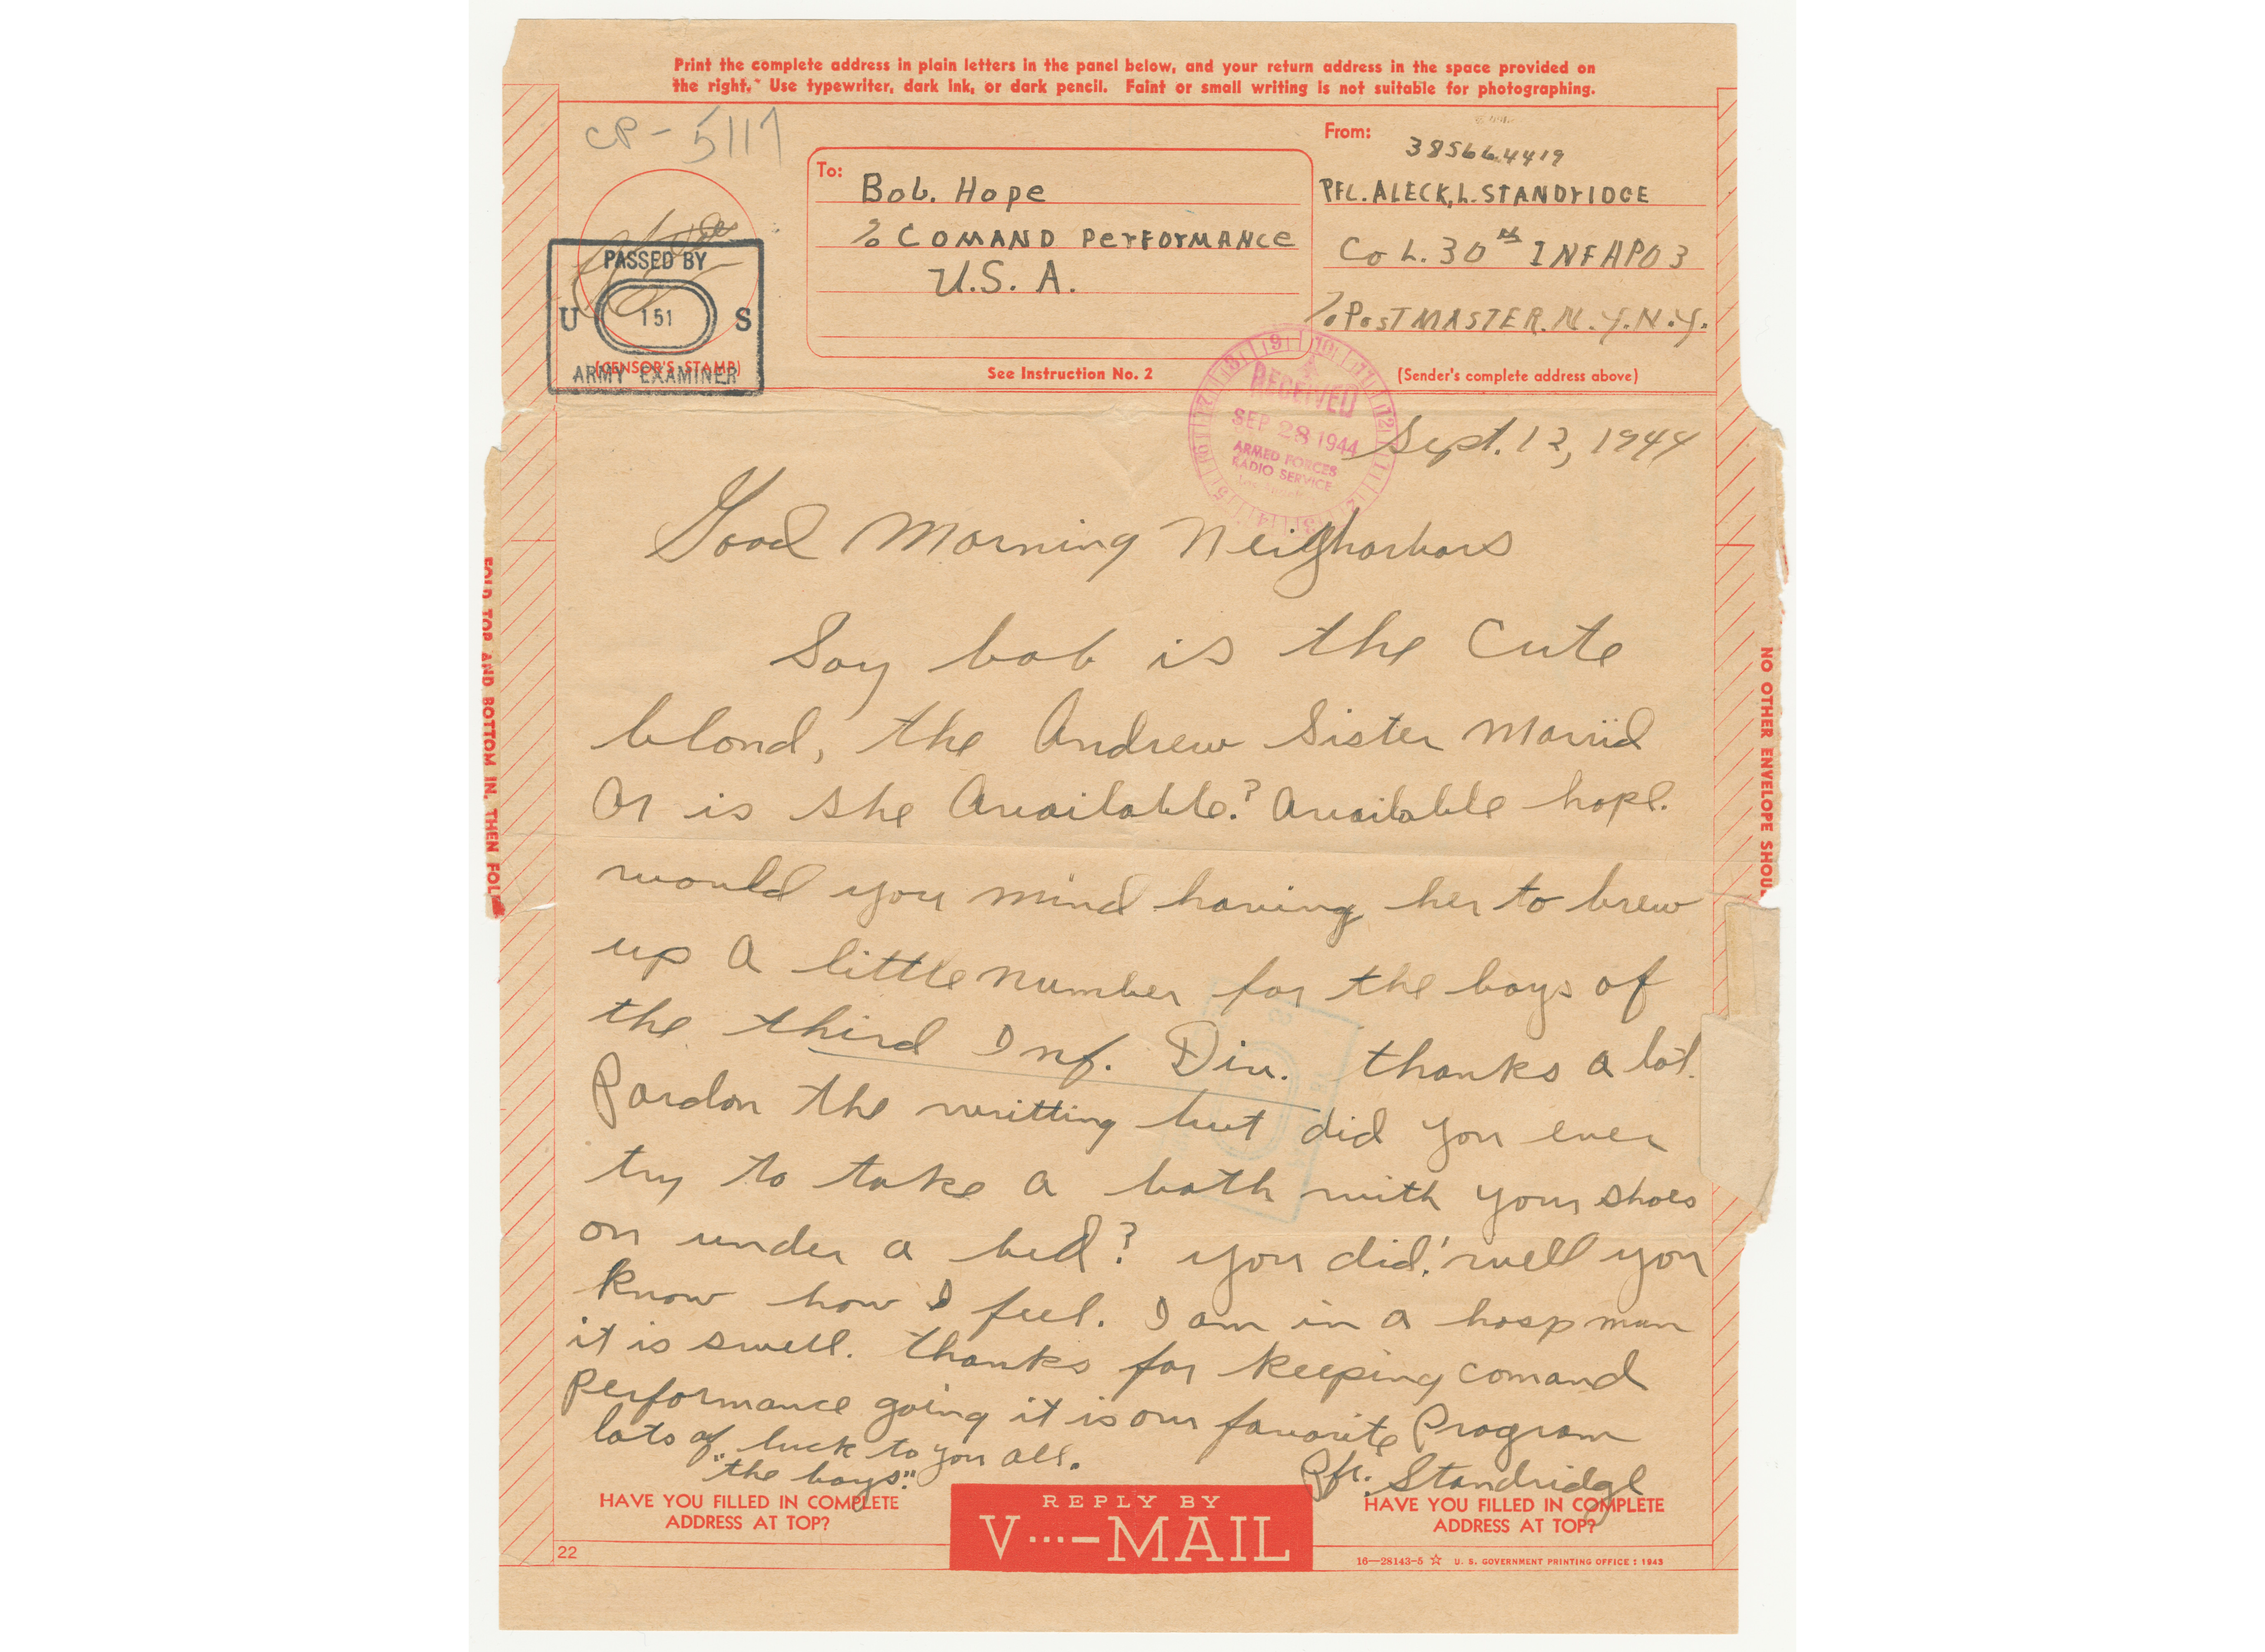 Print the complete address in plain letters in the panel below, and your return address in the space provided on
the right. Use typewriter, dark ink, or dark pencil. Faint or small writing is not suitable for photographing.
CP - 5117
To:
Bob. Hope
% COMAND PerFOrMANCe
U.S. A.
See Instruction No. 2
From:
385664419
PFC. ALECK, L. STANDrIDGE
Co L. 30th INF APO 3
% PosTMASTER. N.Y. N.Y.
(Sender's complete address above)
PASSED BY
U 151 S
(CENSOR'S STAMP)
ARMY EXAMINER
RECEIVED
SEP 28 1944
ARMED FORCES
RADIO SERVICE
Sept. 12, 1944
Good Morning Neighorbors
Say bob is the Cute
blond, the Andrew Sister Marrid
Or is she Available? Available hope.
would you mind having her to brew
up a little number for the boys of
the third Inf. Div. thanks a lot.
Pardon the writting but did you ever
try to take a bath with your shoes
on under a bed? you did! well you
know how I feel. I am in a hosp man
it is swell. thanks for keeping comand
Performance going it is our favorite Program
lots of luck to you all.
"the boys."
Pfc. Standridge
FOLD TOP AND BOTTOM IN, THEN FOL
NO OTHER ENVELOPE SHOU
HAVE YOU FILLED IN COMPLETE
ADDRESS AT TOP?
REPLY BY
V···—MAIL
HAVE YOU FILLED IN COMPLETE
ADDRESS AT TOP?
22
16—28143-5 ☆ U. S. GOVERNMENT PRINTING OFFICE : 1943